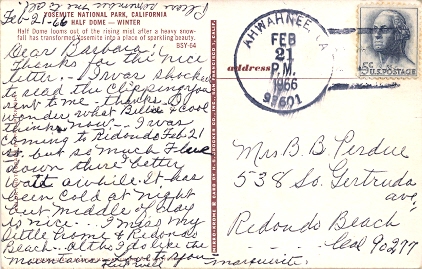 YOSEMITE NATIONAL PARK, CALIFORNIA
HALF DOME — WINTER
Half Dome looms out of the rising mist after a heavy snow-
fall has transformed Yosemite into a place of sparkling beauty.
BSY-54
Feb - 21-66
Dear Barbara!
Thanks for the nice
letter - I was shocked
to read the clipping you
sent to me - thanks. I
wonder what Billie &
thinks now - I was
coming to Redondo Feb 21
so but so much I
down there better
wait awhile. It has
been cold at night
but middle of day
is nice... I miss my
little home & Redondo
Beach - altho I do like the
mountains - Love to you
Marguerite.
address
AHWAHNEE, CA
FEB
21
P.M.
1966
93601
5c U.S. POSTAGE
Mrs B. B. Perdue
538 So. Gertruda
ave,
Redondo Beach
Cal 90277